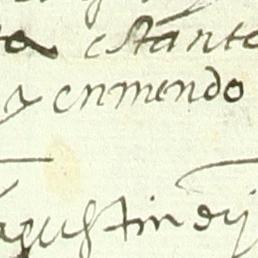 estante
y enmendo
agustin de